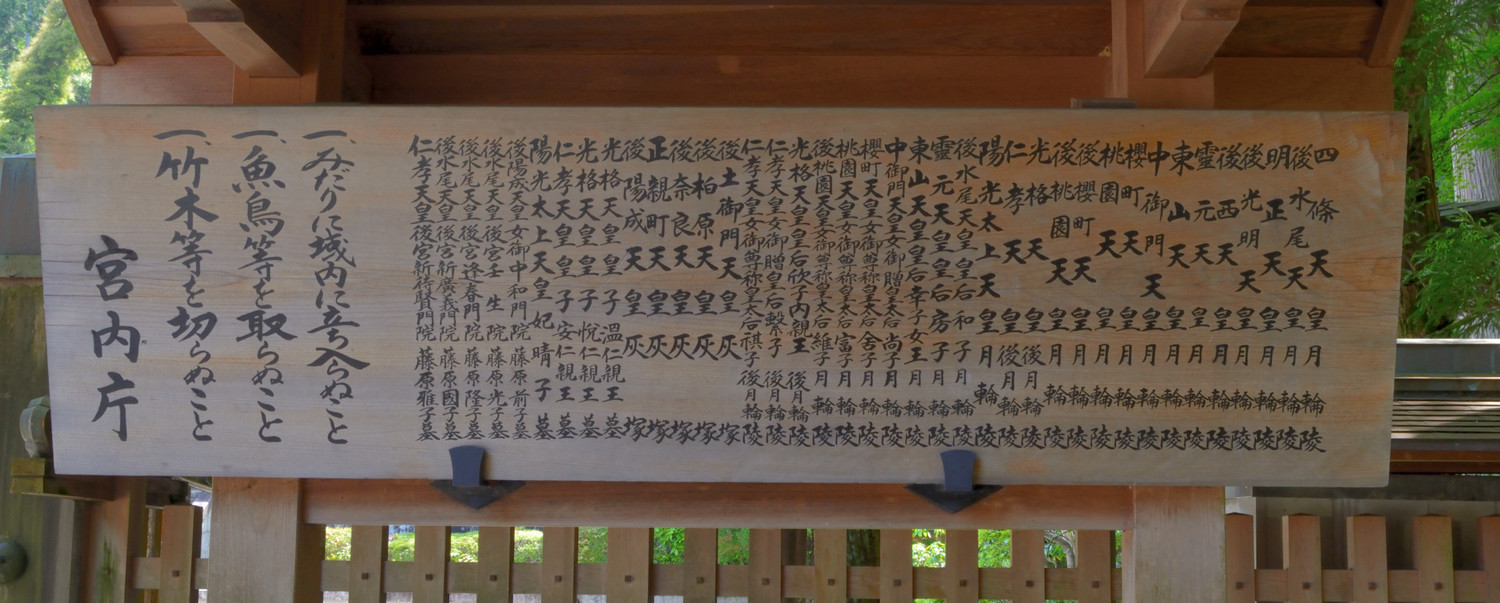 四條天皇月輪陵
後水尾天皇月輪陵
明正天皇月輪陵
後光明天皇月輪陵
後西天皇月輪陵
靈元天皇月輪陵
東山天皇月輪陵
中御門天皇月輪陵
櫻町天皇月輪陵
桃園天皇月輪陵
後櫻町天皇月輪陵
後桃園天皇月輪陵
光格天皇後月輪陵
仁孝天皇後月輪陵
陽光太上天皇月輪陵
後水尾天皇皇后和子月輪陵
靈元天皇皇后房子月輪陵
東山天皇皇后幸子女王月輪陵
中御門天皇女御贈皇太后尚子月輪陵
櫻町天皇女御尊称皇太后舎子月輪陵
桃園天皇女御尊称皇太后富子月輪陵
後桃園天皇女御尊称皇太后維子月輪陵
光格天皇皇后欣子内親王後月輪陵
仁孝天皇女御贈皇后繋子後月輪陵
仁孝天皇女御尊称皇太后祺子後月輪陵
後土御門天皇灰塚
後柏原天皇灰塚
後奈良天皇灰塚
正親町天皇灰塚
後陽成天皇灰塚
光格天皇皇子温仁親王墓
光格天皇皇子悦仁親王墓
仁孝天皇皇子安仁親王墓
陽光太上天皇妃晴子墓
後陽成天皇女御中和門院藤原前子墓
後水尾天皇後宮壬生院藤原光子墓
後水尾天皇後宮逢春門院藤原隆子墓
後水尾天皇後宮新廣義門院藤原國子墓
仁孝天皇後宮新待賢門院藤原雅子墓
一、みだりに域内に立ち入らぬこと
一、魚鳥等を取らぬこと
一、竹木等を切らぬこと
宮内庁